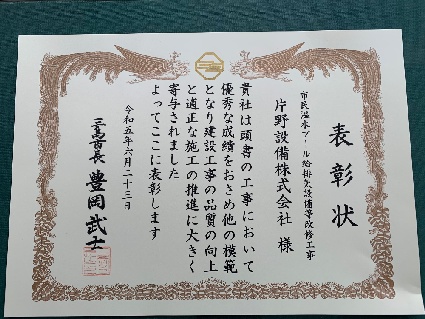 表彰状
市民温水プール給排水設備等改修工事
片野設備株式会社 様
貴社は頭書の工事において
優秀な成績をおさめ他の模範
となり建設工事の品質の向上
と適正な施工の推進に大きく
寄与されました
よってここに表彰します
令和五年六月二十三日
三島市長 豊岡武士